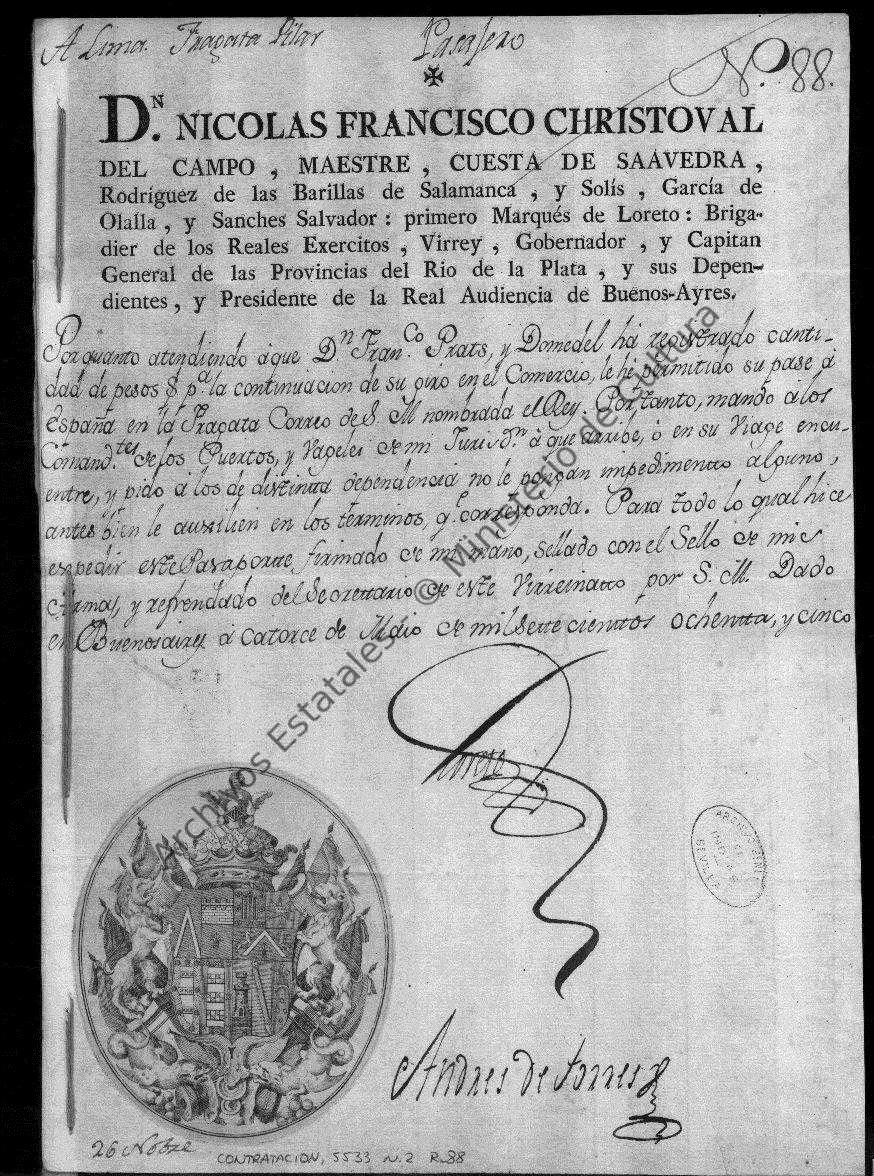 A Lima. Fragata Pilar Pasajero Nº. 88.
D.N NICOLAS FRANCISCO CHRISTOVAL
DEL CAMPO , MAESTRE , CUESTA DE SAAVEDRA ,
Rodríguez de las Barillas de Salamanca , y Solís , García de
Olalla , y Sanches Salvador : primero Marqués de Loreto : Briga-
dier de los Reales Exercitos , Virrey , Gobernador , y Capitan
General de las Provincias del Rio de la Plata , y sus Depen-
dientes , y Presidente de la Real Audiencia de Buenos-Ayres.
Por quanto atendiendo á que Dn. Franco. Prats, y Domedel há registrado canti-
dad de pesos fs. pa. la continuacion de su giro en el Comercio, le hé permitido su pase á
España en la Fragata Correo de S. M nombrada el Rey. Por tanto, mando á los
Comandtes. de los Puertos, y Vageles de mi Jurisdn. á que arribe, ó en su Viage encu-
entre, y pido á los de distinta dependencia no le pongan impedimento alguno,
antes bien le auxilien en los terminos, qe. corresponda. Para todo lo qual hice
expedir este Pasaporte, firmado de mi mano, sellado con el Sello de mis
Armas, y refrendado del Secretario de este Virreinato por S. M. Dado
en Buenosaires á catorce de Maio de mil sette cientos ochenta, y cinco
Loreto
Andres de Torres
26 Nobre
CONTRATACION, 5533 N.2 R.88
© Ministerio de Cultura
Archivos Estatales